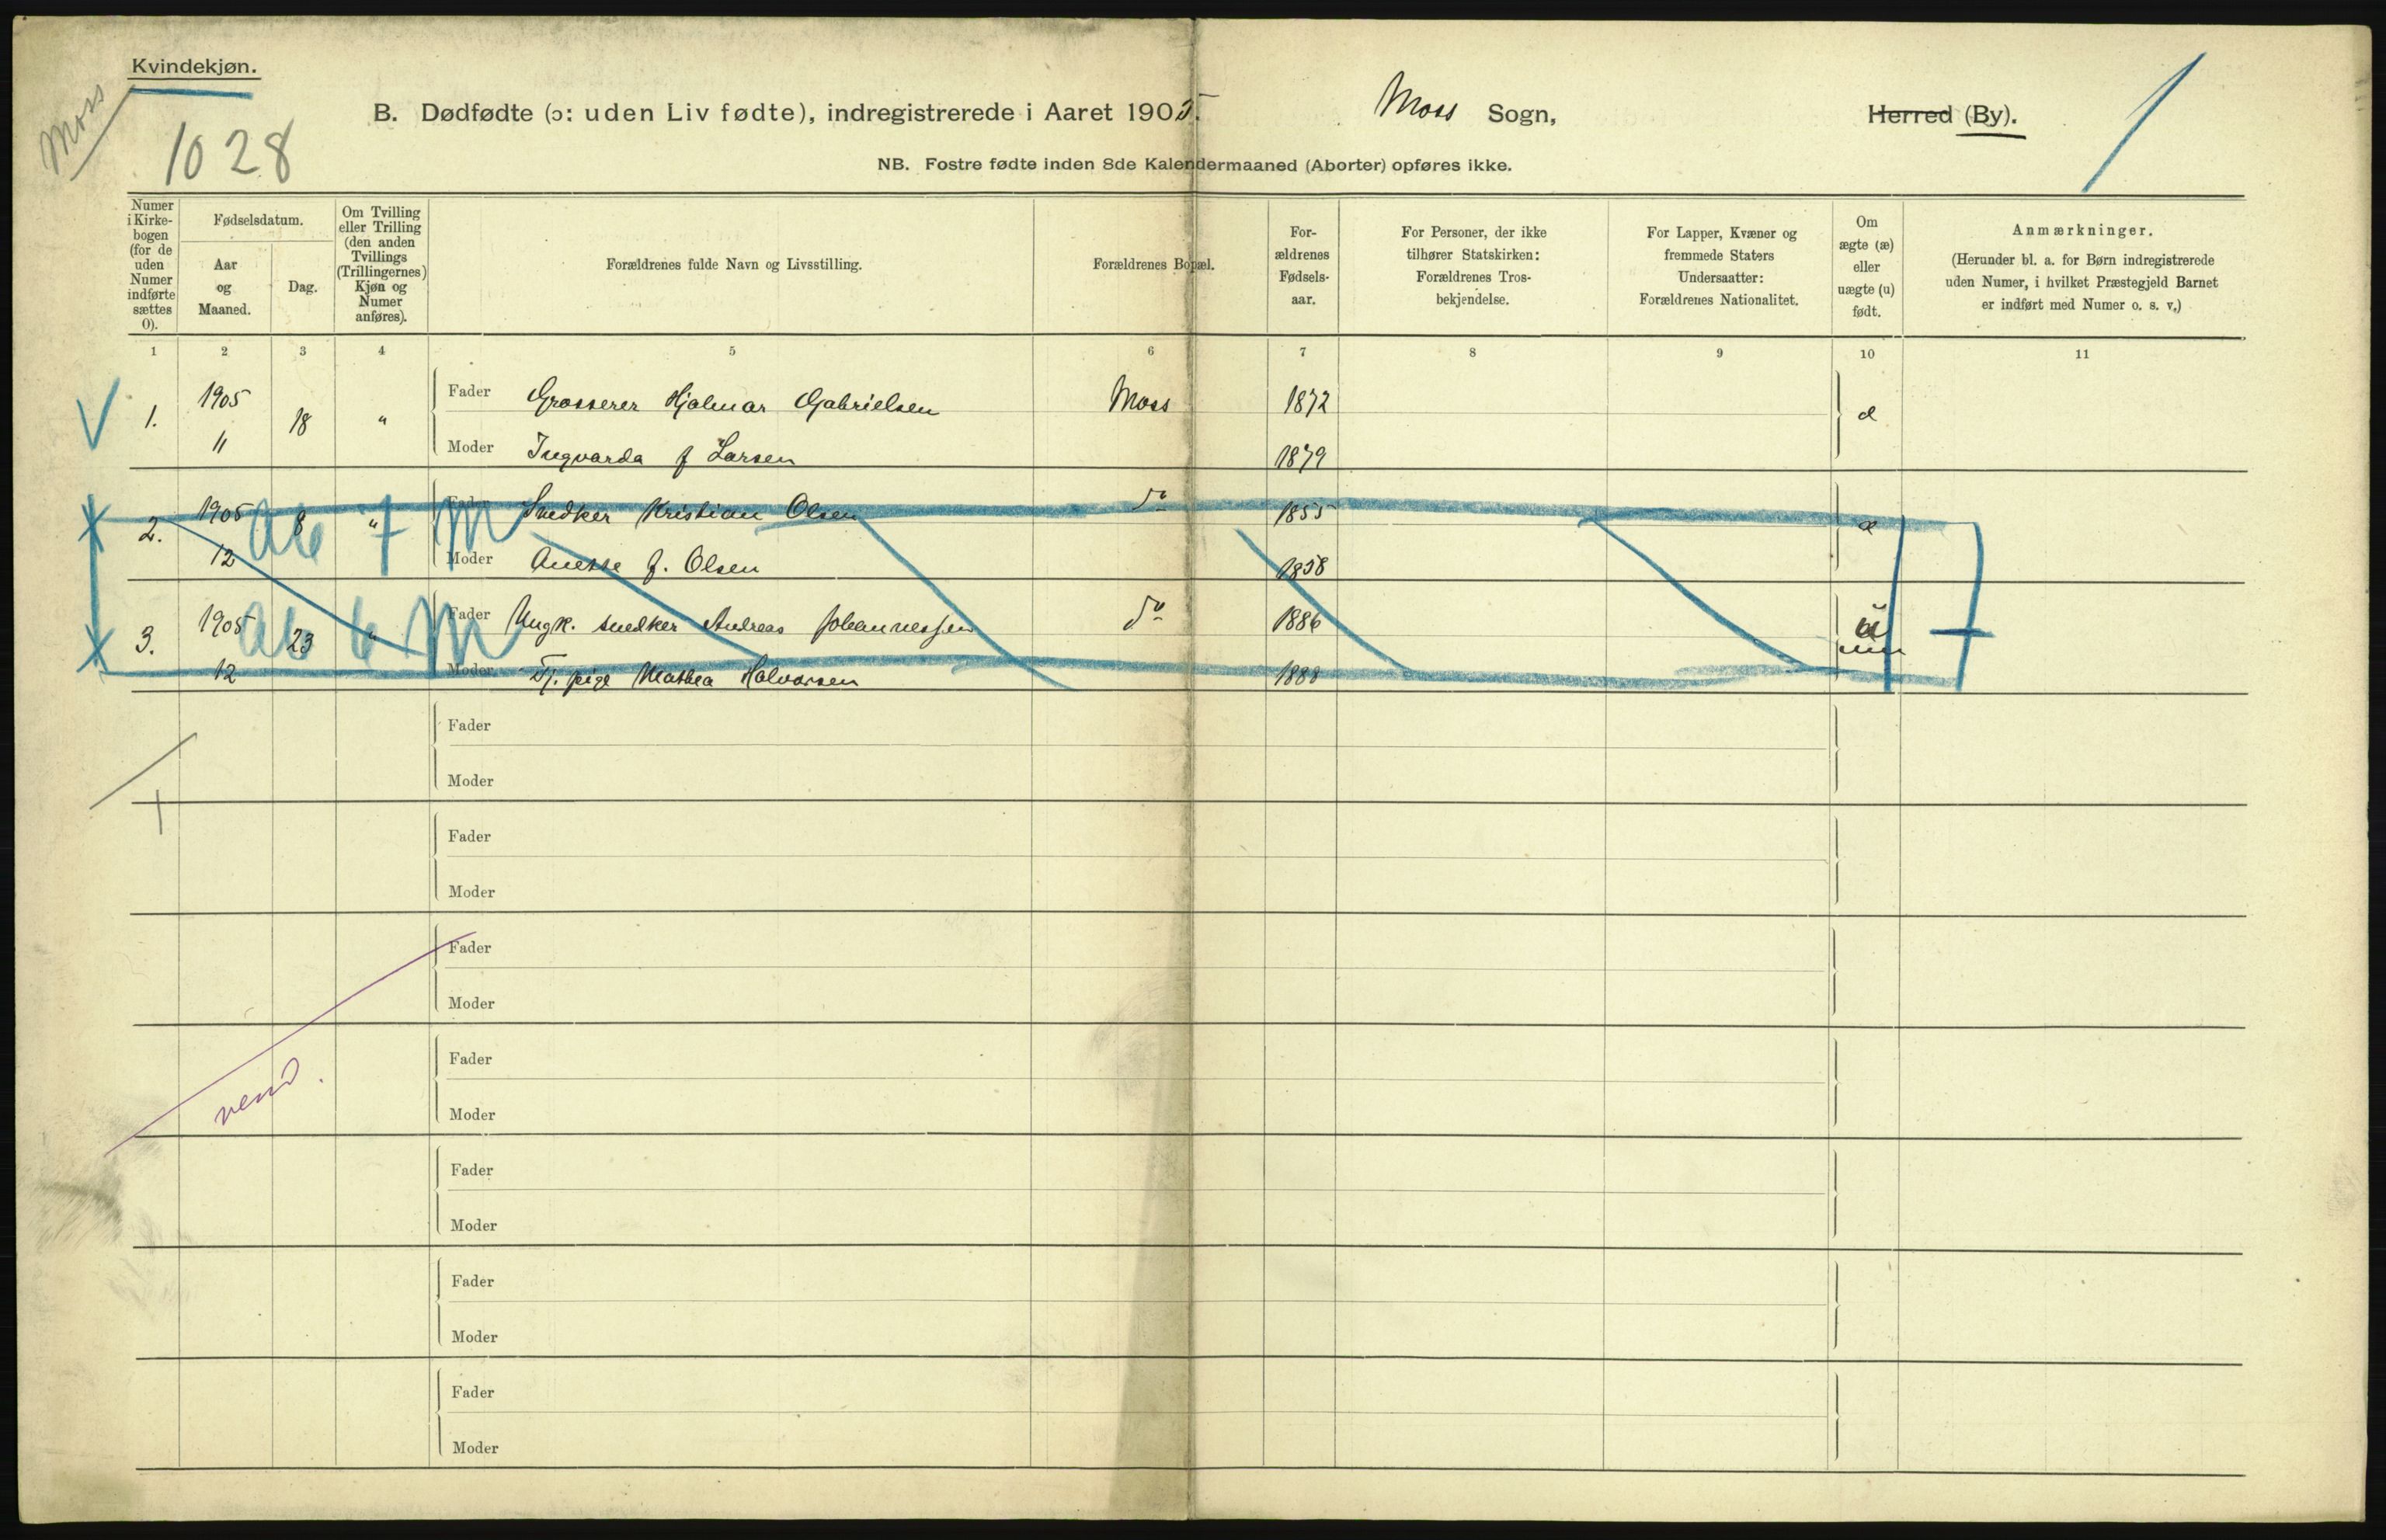 Kvindekjøn.
Moss
1028
B. Dødfødte (ɔ: uden Liv fødte), indregistrerede i Aaret 1905. Moss Sogn, Herred (By).
NB. Fostre fødte inden 8de Kalendermaaned (Aborter) opføres ikke.
Numer i Kirkebogen (for de uden Numer indførte sættes 0).
Fødselsdatum.
Aar og Maaned.
Dag.
Om Tvilling eller Trilling (den anden Tvillings (Trillingernes) Kjøn og Numer anføres).
Forældrenes fulde Navn og Livsstilling.
Forældrenes Bopæl.
Forældrenes Fødselsaar.
For Personer, der ikke tilhører Statskirken: Forældrenes Trosbekjendelse.
For Lapper, Kvæner og fremmede Staters Undersaatter: Forældrenes Nationalitet.
Om ægte (æ) eller uægte (u) født.
Anmærkninger.
(Herunder bl. a. for Børn indregistrerede uden Numer, i hvilket Præstegjeld Barnet er indført med Numer o. s. v.)
1 2 3 4 5 6 7 8 9 10 11
1. 1905 11 18 " Fader Grosserer Hjalmar Gabrielsen Moss 1872 æ
Moder Ingvarda f Larsen 1879
2. 1905 12 8 " Fader Snedker Kristian Olsen do 1855 æ
Ab 7 M
Moder Anette f. Olsen 1858
3. 1905 12 23 " Fader Ungk. snedker Andreas Johannessen do 1886 u
Ab 6 M
Moder Tj. pige Mathea Halvorsen 1888
Fader
Moder
Fader
Moder
Fader
Moder
Fader
Moder
vend.
Fader
Moder
Fader
Moder
Fader
Moder